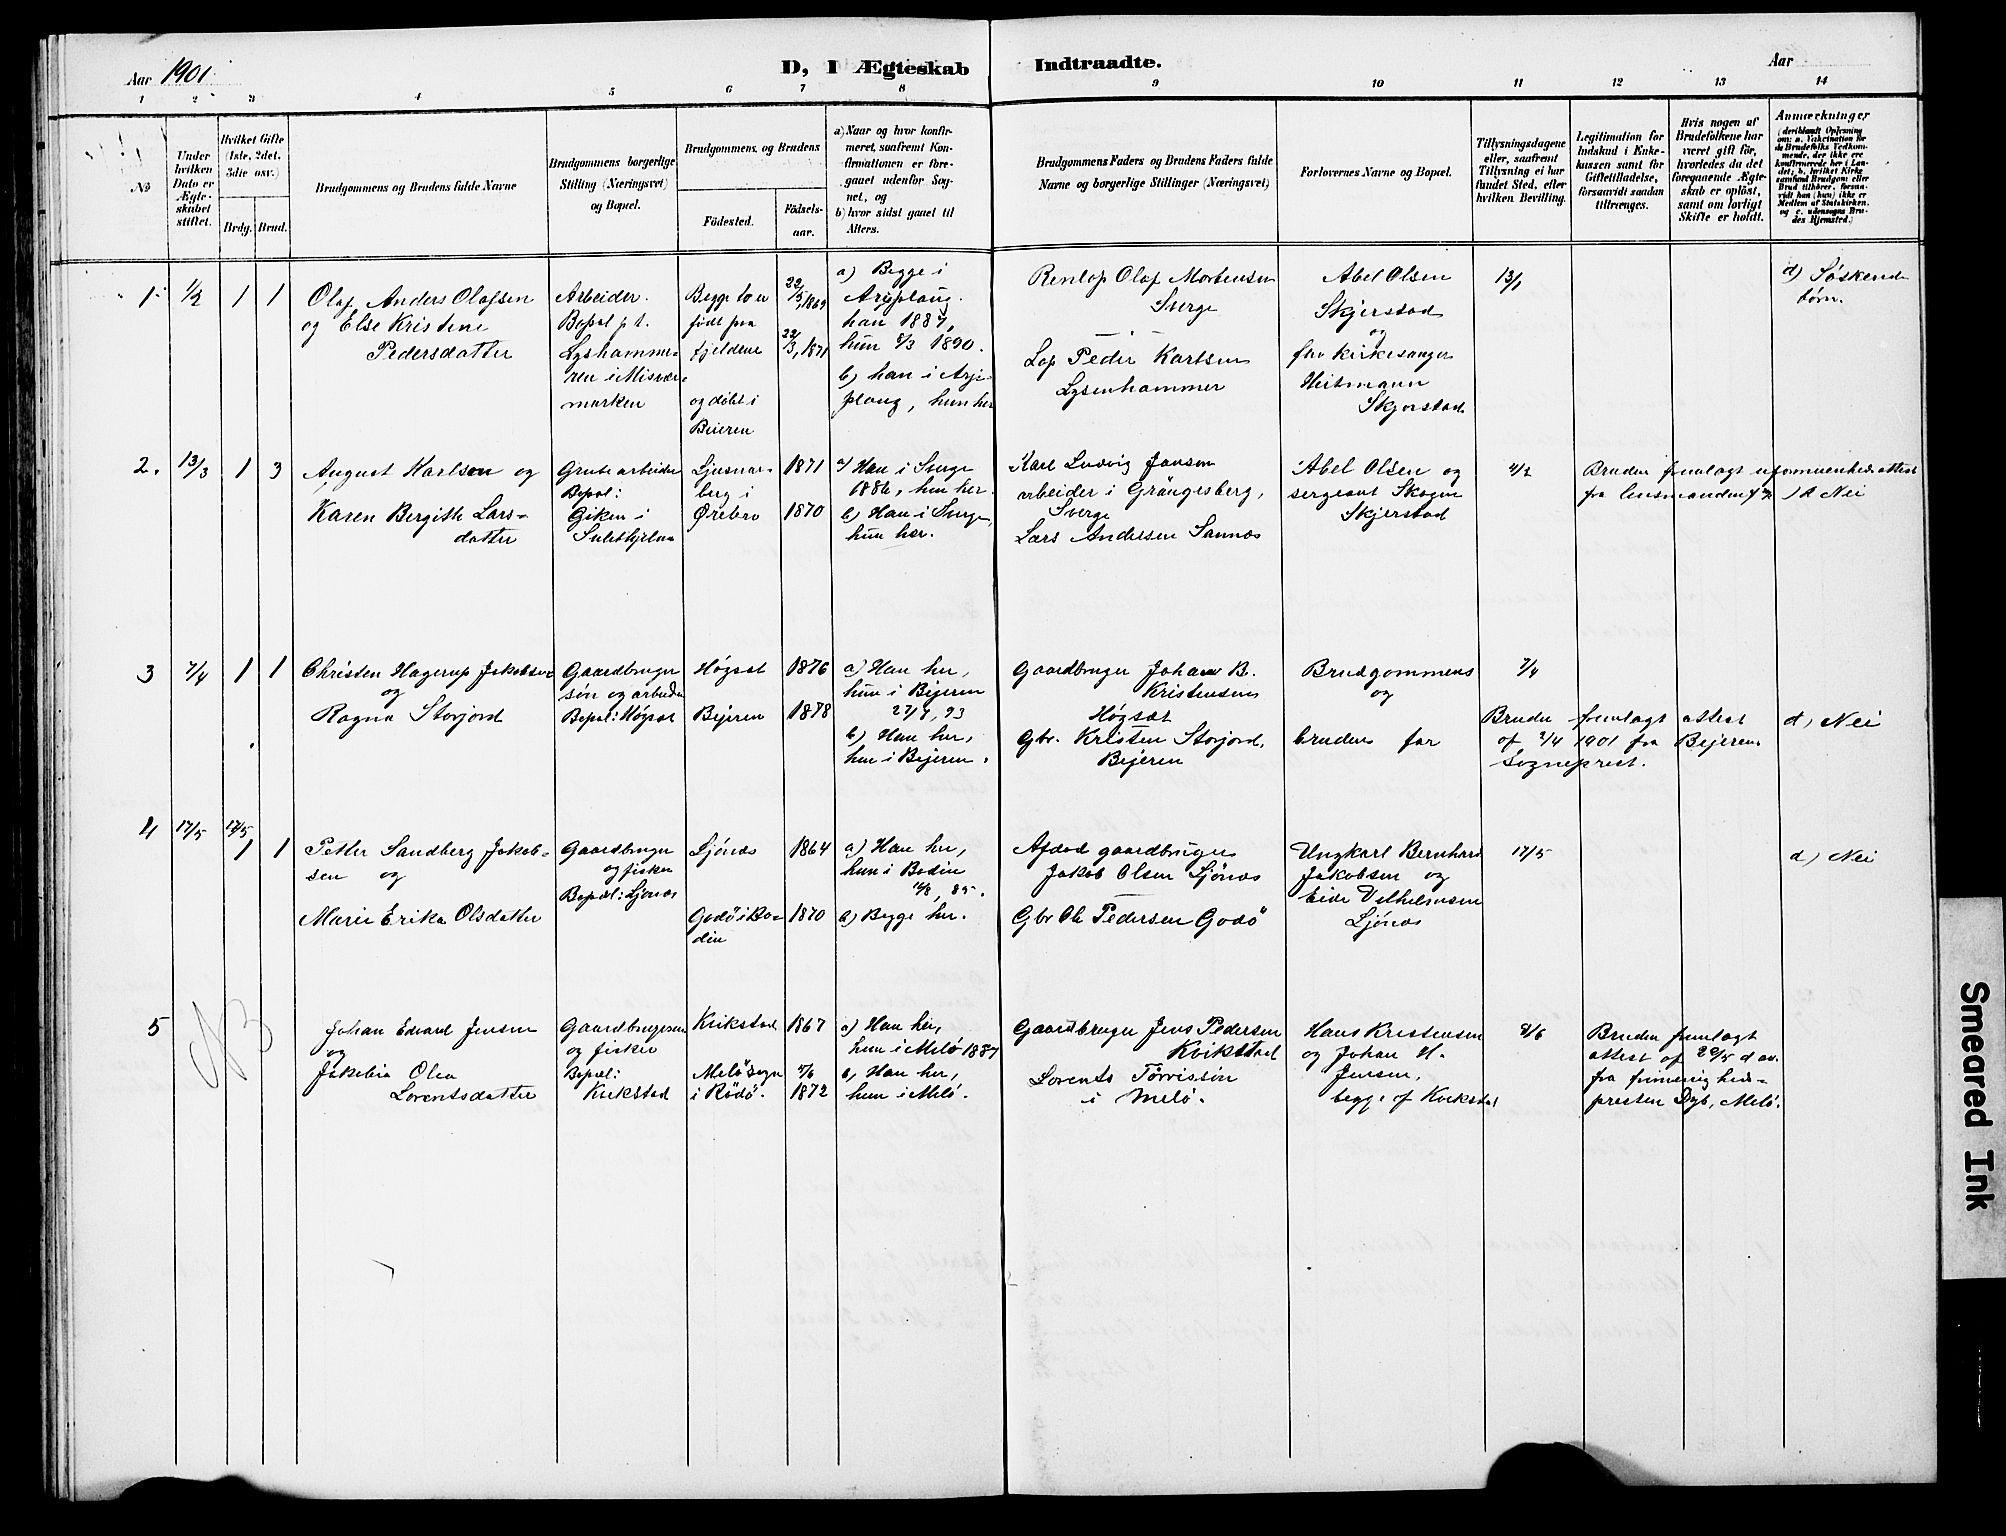 Aar 1901.
D, I Ægteskab Indtraadte.
Aar
1 2 3 4 5 6 7 8 9 10 11 12 13 14
No
Under hvilken Dato er Ægteskabet stiftet.
Hvilket Gifte (1ste, 2det, 3die osv.)
Brdg. Brud.
Brudgommens og Brudens fulde Navne
Brudgommens borgerlige Stilling (Næringsvei) og Bopæl.
Brudgommens og Brudens
Födested.
Födselsaar.
a) Naar og hvor konfirmeret, saafremt Konfirmationen er foregaaet udenfor Sognet, og
b) hvor sidst gaaet til Alters.
Brudgommens Faders og Brudens Faders fulde Navne og borgerlige Stillinger (Næringsvei)
Forlovernes Navne og Bopæl.
Tillysningsdagene eller, saafremt Tillysning ei har fundet Sted, efter hvilken Bevilling.
Legitimation for Indskud i Enkekassen samt for Giftetilladelse, forsaavidt saadan tiltrænges.
Hvis nogen af Brudefolkene har været gift för, hvorledes da det foregaaende Ægteskab er oplöst, samt om lovligt Skifte er holdt.
Anmærkninger
1. 1/2 1 1
Olaf Anders Olafsen
og Else Kristine
Pedersdatter
Arbeider.
Bopæl p. t.
Lyshamme-
ren i Misvær-
marken
Begge to er
født paa
fjeldene
og døbt i
Beieren
22/5 1869
22/3, 1871
a) Begge i
Arjeploug.
han 1887,
hun 8/3 1890.
b) han i Arje-
ploug, hun her
Renlap Olaf Mortensen
Sverge
Lap Peder Karlsen
Lysenhammer
Abel Olsen
Skjerstad
og
fhv kirkesanger
Heitmann
Skjerstad
13/1
d) Søskende-
børn.
2. 13/3 1 3
August Karlsen og
Karen Bergith Lars-
datter
Grubearbeider
Bopæl:
Giken i
Sulitjelma
Ljusnars-
berg i
Ørebro
1871
1870
a) Han i Sverge
1886, hun her.
b) Han i Sverge,
hun her.
Karl Ludvig Jansen
arbeider i Grängesberg,
Sverge
Lars Andersen Sannæs
Abel Olsen og
sergeant Skogen
Skjerstad
Bruden fremlagt uformuenhedsattest
fra lensmanden
d Nei
3 7/4 1 1
Christen Hagerup Jakobsen
og
Ragna Storjord
Gaardbruger
søn og arbeider
Bopæl: Høgset
Høgset
Bejeren
1876
1878
a) Han her,
hun i Bejeren
27/8, 93
b) Han her,
hun i Bejeren.
Gaardbruger Johan B.
Kristensen
Høgset
Gbr. Kristen Storjord,
Bejeren
Brudgommens
og
brudens far
7/4
Bruden fremlagt attest
af 2/4 1901 fra Bejerens
Sogneprest.
d) Nei
4 17/5 17/5 1 1
Petter Sandberg Jakob-
sen og
Marie Erika Olsdatter
Gaardbruger
og fisker
Bopæl: Ljønæs
Ljönæs
Godö i Bo-
din
1864
1870
a) Han her,
hun i Bodin
, 85.
b) Begge her.
Afdød gaardbruger
Jakob Olsen Ljönæs
Gbr Ole Pedersen Godö
Ungkarl Bernhard
Jakobsen og
Eide Vilhelmsen
Ljönæs
17/5
d) Nei
5 NB
Johan Edvard Jensen
og
Jakobia Olea
Lorentsdatter
Gaardbrugersøn
og fisker
Bopæl:
Kvikstad
Kvikstad
Melösogn
i Rödö.
1867
1872
a) Han her,
hun i Melö 1887
b) Han her,
hun i Melö.
Gaardbruger Jens Pedersen
Kvikstad
Lorents Torrissön
i Melö.
Hans Kristensen
og Johan H.
Jensen,
begge af Kvikstad
9/6
Bruden fremlagt
attest af 29/5 d. aa.
fra
presten Dyb, Melö.
Smeared Ink